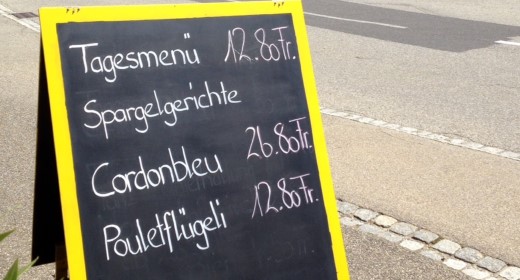 Tagesmenü 12.80Fr.
Spargelgerichte
Cordonbleu 26.80Fr.
Pouletflügeli 12.80Fr.